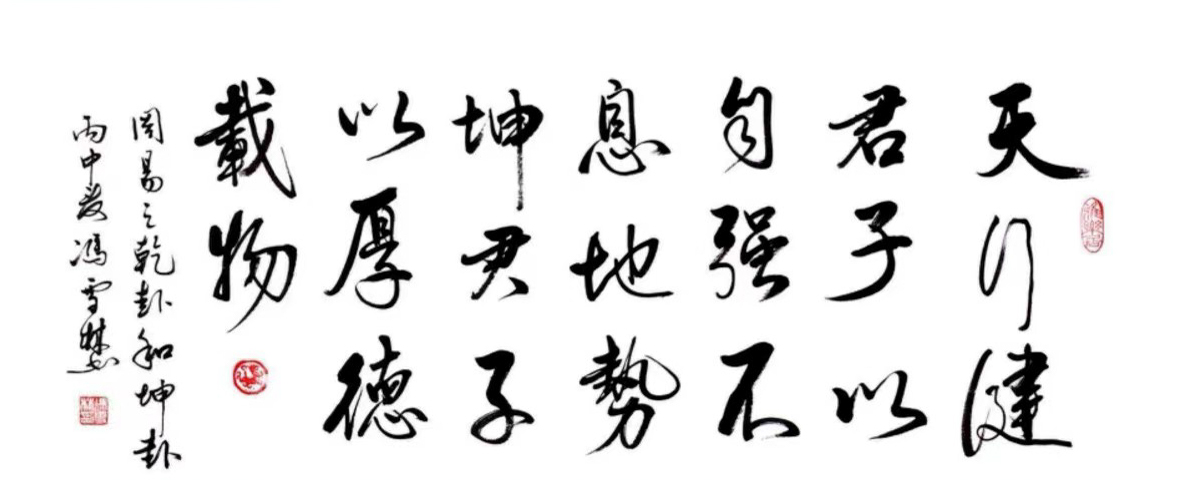 天行健
君子以
自强不
息地势
坤君子
以厚德
載物
周易之乾卦和坤卦
丙申发冯雪楚